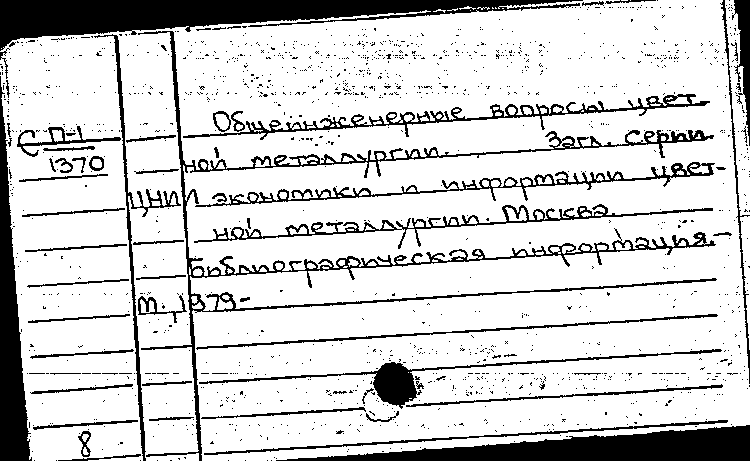 Общеинженерные вопросы цвет-
С П-1
1370
ной металлургии. Загл. серии
ЦНИИ экономики и информации цвет-
ной металлургии. Москва.
Библиографическая информация.-
М., 1979-
8